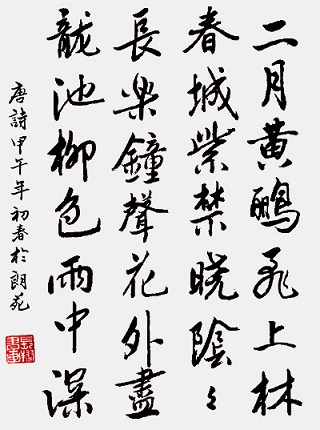 二月黃鸝飛上林
春城紫禁曉陰〻
長樂鐘聲花外盡
龍池柳色雨中深
唐詩甲午年初春於朗苑